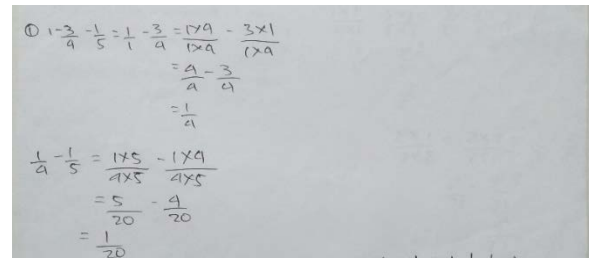 ① 1-3/4 - 1/5 = 1/1 - 3/4 = 1×4/1×4 - 3×1/1×4
= 4/4 - 3/4
= 1/4
1/4 - 1/5 = 1×5/4×5 - 1×4/4×5
= 5/20 - 4/20
= 1/20